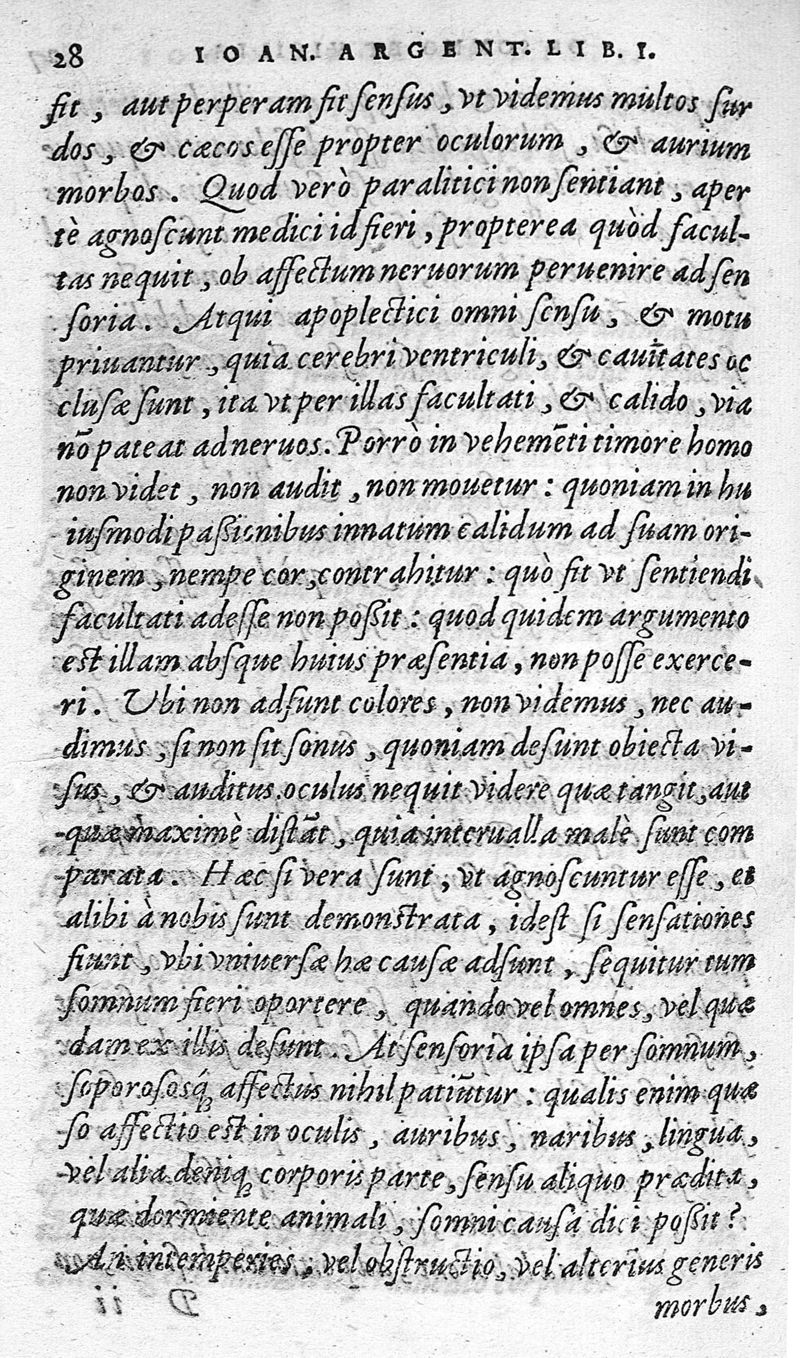 28 IOAN. ARGENT. LIB. I.
fit, aut perperam fit sensus, vt videmus multos sur
dos, & cæcos esse propter oculorum, & aurium
morbos. Quod verò paralitici non sentiant, aper
tè agnoscunt medici id fieri, propterea quòd facul-
tas nequit, ob affectum neruorum peruenire ad sen
soria. Atqui apoplectici omni sensu, & motu
priuantur, quia cerebri ventriculi, & cauitates oc
clusæ sunt, ita vt per illas facultati, & calido, via
nõ pateat ad neruos. Porrò in vehemẽti timore homo
non videt, non audit, non mouetur: quoniam in hu
iusmodi passionibus innatum calidum ad suam ori-
ginem, nempe cor, contrahitur: quò fit vt sentiendi
facultati adesse non possit: quod quidem argumento
est illam absque huius præsentia, non posse exerce-
ri. Vbi non adsunt colores, non videmus, nec au-
dimus, si non sit sonus, quoniam desunt obiecta vi-
sus, & auditus. oculus nequit videre quæ tangit, aut
quæ maximè distãt, quia interualla malè sunt com
parata. Hæc si vera sunt, vt agnoscuntur esse, et
alibi à nobis sunt demonstrata, idest si sensationes
fiunt, vbi vniuersæ hæ causæ adsunt, sequitur tum
somnum fieri oportere, quando vel omnes, vel quæ
dam ex illis desunt. At sensoria ipsa per somnum,
soporososq́; affectus nihil patiũtur: qualis enim quæ
so affectio est in oculis, auribus, naribus, lingua,
vel alia deniq; corporis parte, sensu aliquo prædita,
quæ dormiente animali, somni causa dici possit?
An intemperies, vel obstructio, vel alterius generis
morbus,